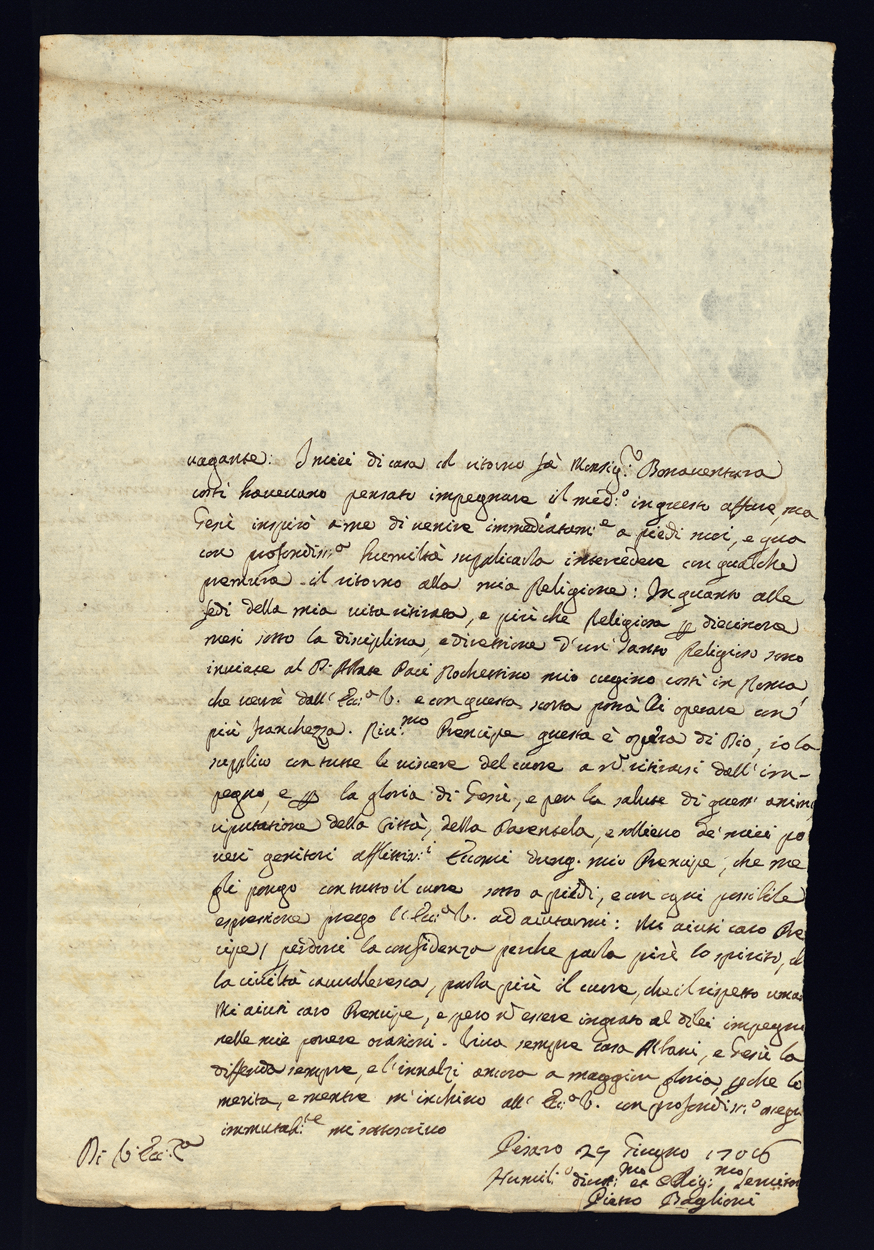 vagante: I miei di casa col ritorno fà Monsig.ro Bonaventura
costì havevano pensato impegnare il med.o in questo affare, ma
Gesù inspirò a me di venire immediatam.e a piedi suoi, e qua
con profondiss.a humiltà supplicarla intercedere con qualche
premura il ritorno alla mia Religione: In quanto alle
fedi della mia vita ritirata, e più che Religiosa p diecinove
mesi sotto la disciplina, e direttione d'un santo Religioso sono
inviate al P. Abbate Paci Rochettino mio cugino costì in Roma
che verrà dall'Ecc.a V. e con questa scorta potrà Lei operare con
più franchezza. Riv.mo Prencipe questa è opera di Dio, io la
supplico con tutte le viscere del cuore a nō ritirarsi dall'im-
pegno, e p la gloria di Gesù, e per la salute di quest'anim
riputatione della Città, della Parentela, e sollievo de' miei po
veri genitori afflittiss.i Eccomi dunq. mio Prencipe, che me
gli pongo con tutto il cuore sotto a piedi, e con ogni possibile
espressione prego l'Ecc.a V. ad aiutarmi: Mi aiuti caro Pre
cipe, perdoni la confidenza perche parla più lo spirito, ch
la civiltà cavalleresca, parla più il cuore, che il rispetto uma
Mi aiuti caro Prencipe, e pero nō essere ingrato al dilei impegn
nelle mie povere orazioni. Viva sempre casa Albani, e Gesù la
diffenda sempre, e l'innalzi ancora a maggior gloria, pche lo
merita, e mentre m'inchino all'Ecc.a V. con profondiss.o ossequ
immutab.te mi sottoscrivo
Di V. Ecc.za
Pesaro 29 Giugno 1706
Humil.o divot.mo et Oblig.mo servitor
Pietro Baglioni